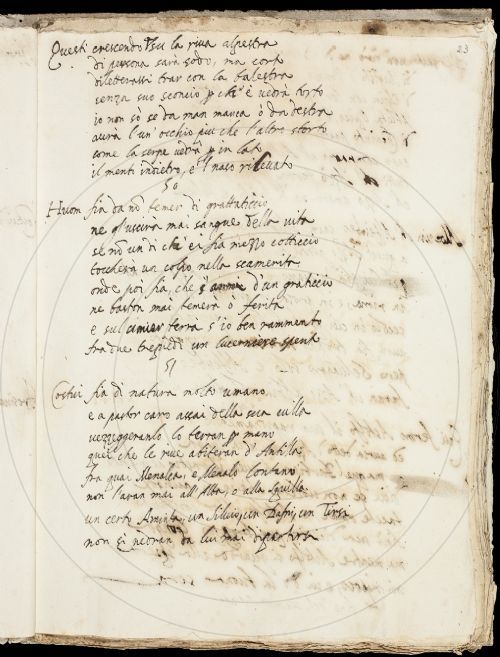 23
Questi crescendo su la riva alpestra
di persona sarà sodo, ma corto
dileterassi trar con la balestra
senza suo sconcio p che è vedrà torto
io non sò se da man manca ò da destra
aurà l'un'occhio più che l'altro storto
come la serpe p in lato
il mento indietro, e'l naso rilevato
50
Huom fia da no temer di grattaticcio
ne gl'uscirà mai sangue della vita
se no un dì che ei fia mezzo cotticcio
toccherà un colpo nella scamerita
onde poi fia, che d'un graticcio
ne baston mai temerà ò ferita
e sul cimier terrà s'io ben rammento
fra due treppiedi un lucerniere spento
51
Costui fia di natura molto umano
e a pastor caro assai della sua villa
vezzeggeranlo lo terran p mano
quei che le rive abiteran d'Antilla
fra quai Menalca, e Menalo lontano
non saran mai all'Alba, o alla Squilla
un certo Aminta, un Silvio, un Dafni, un Tirsi
non si vedran da lui mai dipartirsi